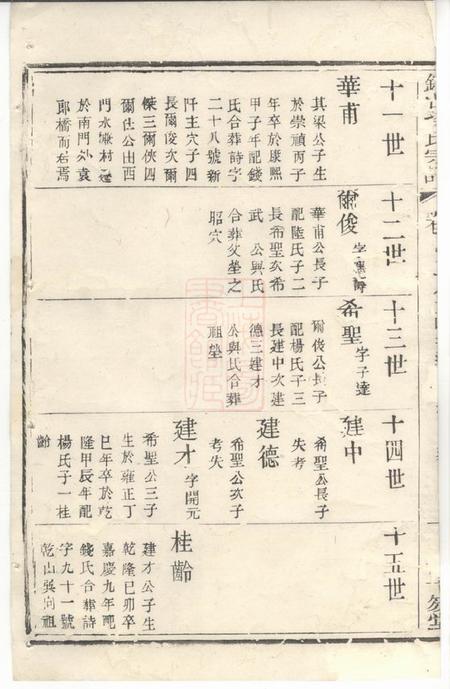 十一世
華甫
其梁公子生
於崇禎丙子
年卒於康熙
甲子年配錢
氏合葬詩字
二十八號新
阡主穴子四
長爾俊次爾
傑三爾俠四
爾仕公出西
門水
於南門外袁
郎橋而右焉
十二世
爾俊
華甫公長子
配陸氏子二
長希聖次希
武 公與氏
合葬父塋之
昭穴
十三世
希聖 字子達
爾俊公長子
配楊氏子三
長建中次建
德三建才
公與氏合葬
祖塋
十四世
建中
希聖公長子
失考
建德
希聖公次子
考失
建才 字開元
希聖公三子
生於雍正丁
巳年卒於乾
隆甲辰年配
楊氏子一桂
齡
十五世
桂齡
建才公子生
乾隆巳卯卒
嘉慶九年配
錢氏合葬詩
字九十一號
乾山巽向祖